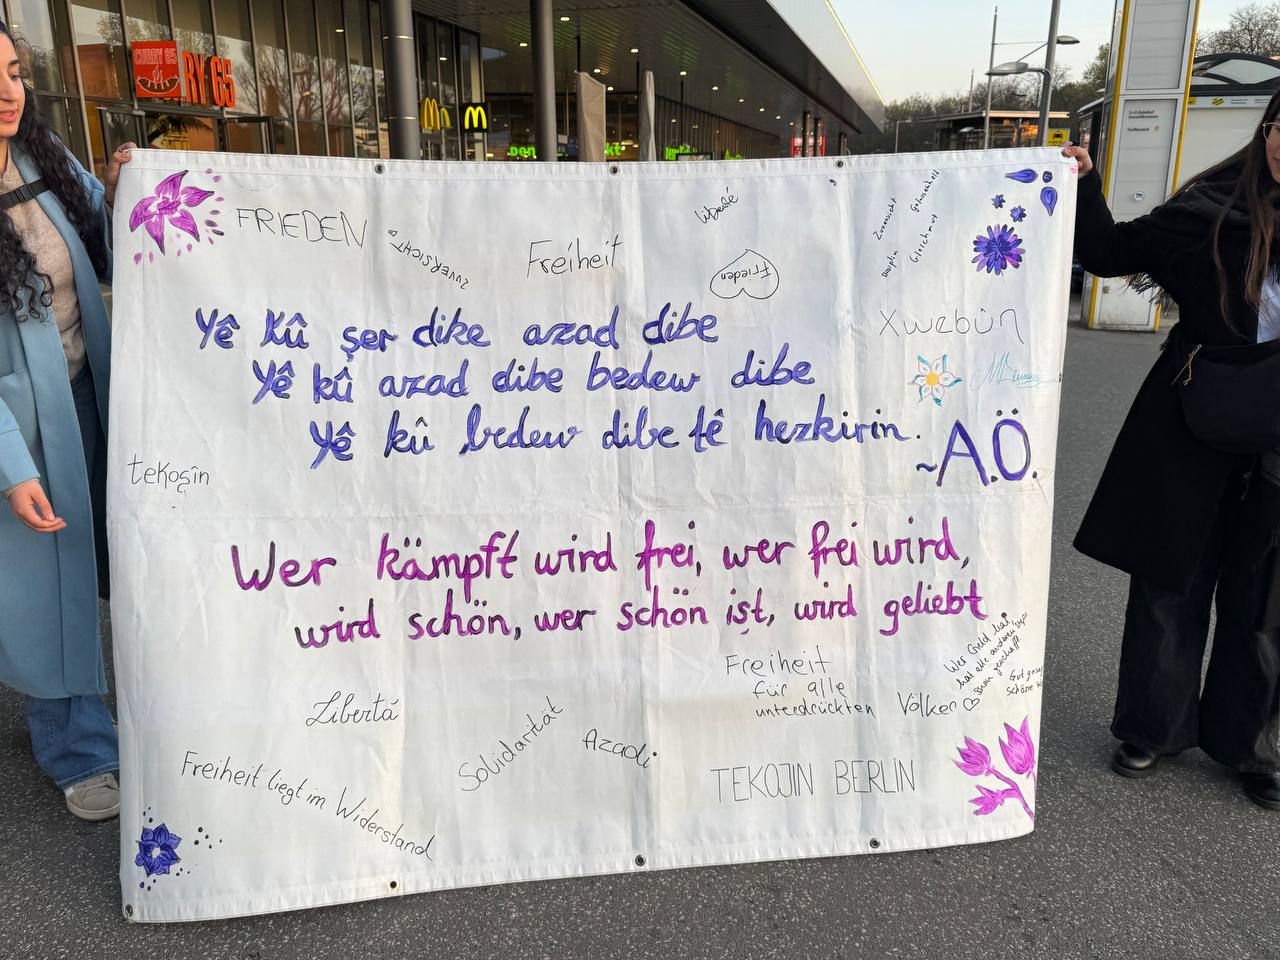 CURRY 65
RRY 65
FRIEDEN
ZUVERSICHT
Freiheit
liberté
Frieden
Zuversicht
Gelassenheit
Disziplin
Gleichmut
Yê kû şer dike azad dibe
Yê kû azad dibe bedew dibe
Yê kû bedew dibe tê hezkirin.
~A.Ö.
Xwebûn
tekoşîn
Wer kämpft wird frei, wer frei wird,
wird schön, wer schön ist, wird geliebt
Freiheit
für alle
unterdrückten Völker
Wer Geld hat,
hat alle anderen
Libertá
Solidarität
Azadi
Freiheit liegt im Widerstand
TEKOJIN BERLIN